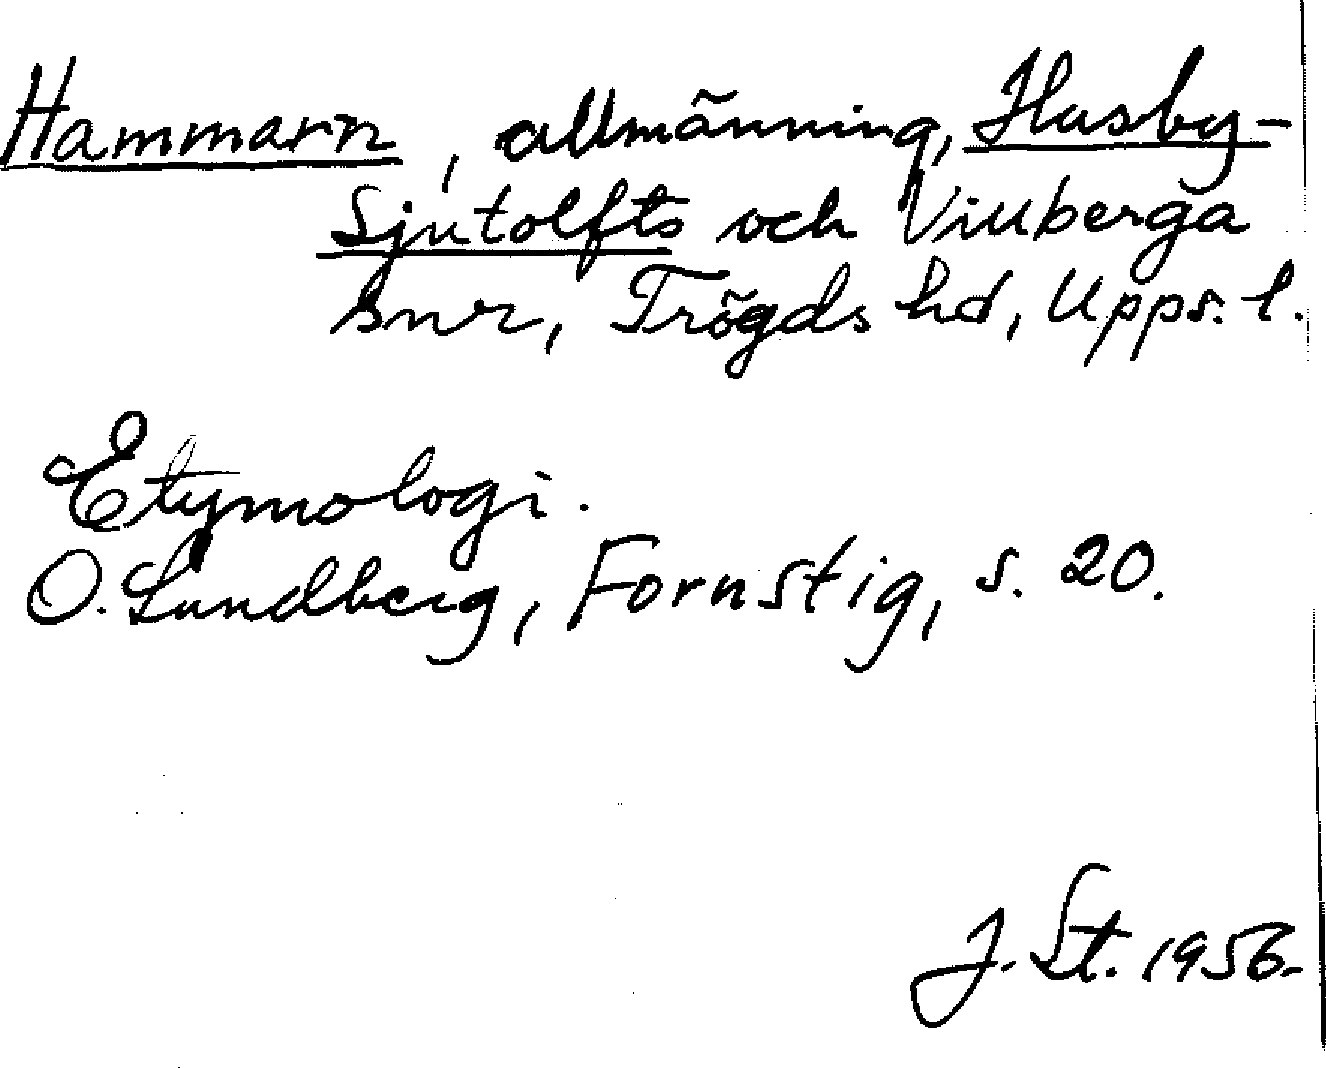 Hammarn, allmänning, Husby-
Sjutolfts och Villberga
snr, Trögds hd, Upps. l.
Etymologi.
O. Lundberg, Fornstig, s. 20.
J. St. 1956.